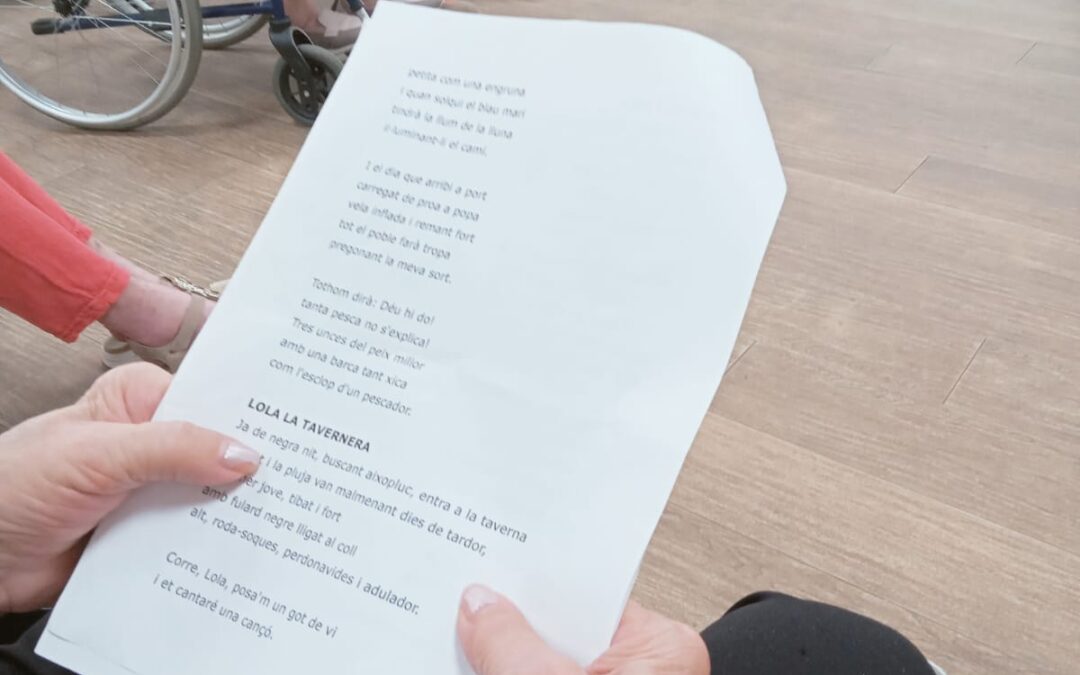 petita com una engruna
i quan solqui el blau marí
tindrà la llum de la lluna
il·luminant-li el camí.
I el dia que arribi a port
carregat de proa a popa
vela inflada i remant fort
tot el poble farà tropa
pregonant la meva sort.
Tothom dirà: Déu hi do!
tanta pesca no s'explica!
Tres unces del peix millor
amb una barca tant xica
com l'esclop d'un pescador.
LOLA LA TAVERNERA
Ja de negra nit, buscant aixopluc, entra a la taverna
i la pluja van malmenant dies de tardor,
jove, tibat i fort
amb fulard negre lligat al coll
alt, roda-soques, perdonavides i adulador.
Corre, Lola, posa'm un got de vi
i et cantaré una cançó.